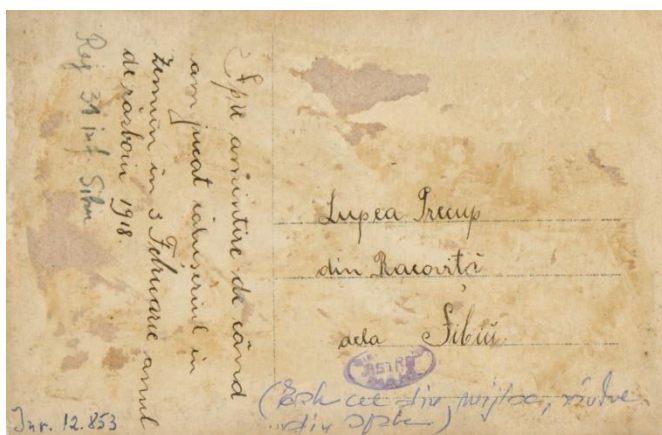 Spre amintire de când
am jucat călușeriul în
Zemun în 3 Februarie anul
de răsboiu 1918.
Reg 31 inf. Sibiu
Lupea Precup
din Racovița
dela Sibiiu
ASTRA
(Este cel din mijloc,
din spate)
Inv. 12.853